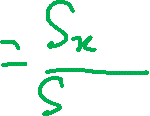 = Sx / S